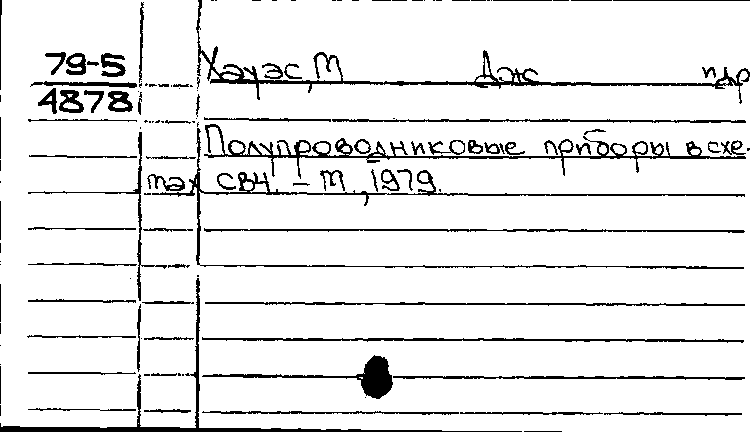 79-5
4878
Хауэс, М Дж и др
Полупроводниковые приборы в схе-
мах СВЧ. – М., 1979.